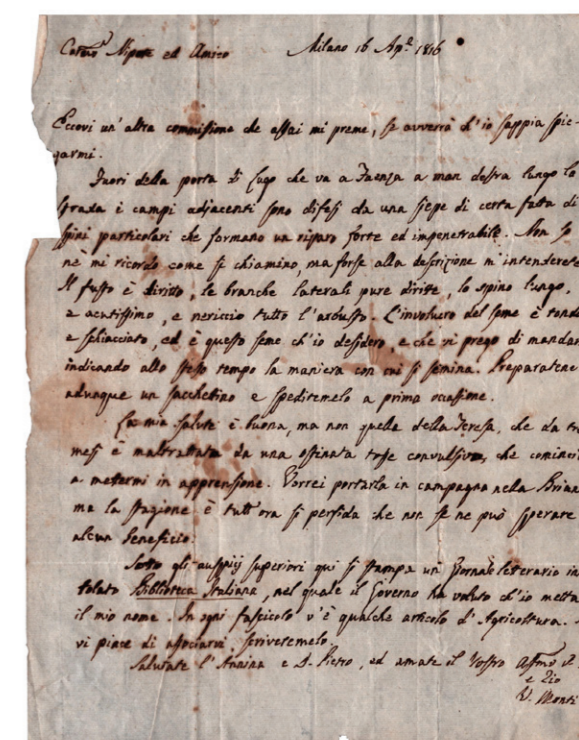 Carmo Nipote ed Amico Milano 16 Ap.e 1816
Eccovi un'altra commissione che assai mi preme, se avverrà ch'io sappia spie-
garmi.
Fuori della porta di Lugo che va a Faenza a man destra lungo la
strada i campi adjacenti sono difesi da una siepe di certa fatta di
spini particolari che formano un riparo forte ed impenetrabile. Non so
nè mi ricordo come si chiamino, ma forse alla descrizione m'intenderete
Il fusto è diritto, le branche laterali pure diritte, lo spino lungo,
e acutissimo, e nericcio tutto l'arbusto. L'involucro del seme è tondo
e schiacciato, ed è questo seme ch'io desidero, e che vi prego di mandar
indicando allo stesso tempo la maniera con cui si semina. Preparatene
adunque un sacchetino e speditemelo a prima occasione.
La mia salute è buona, ma non quella della Teresa, che da tre
mesi è maltrattata da una ostinata tosse convulsiva, che comincia
a mettermi in apprensione. Vorrei portarla in campagna nella Brian
ma la stagione è tutt'ora sì perfida che non se ne può sperare
alcun beneficio.
Sotto gli auspicj superiori qui si stampa un Giornale letterario in
titolato Biblioteca Italiana, nel quale il Governo ha voluto ch'io metta
il mio nome. In ogni fascicolo v'è qualche articolo d'Agricoltura.
vi piace di associarvi, scrivetemelo.
Salutate l'Annina e D. Pietro, ed amate il Vostro Affmo
e Zio
V. Monti